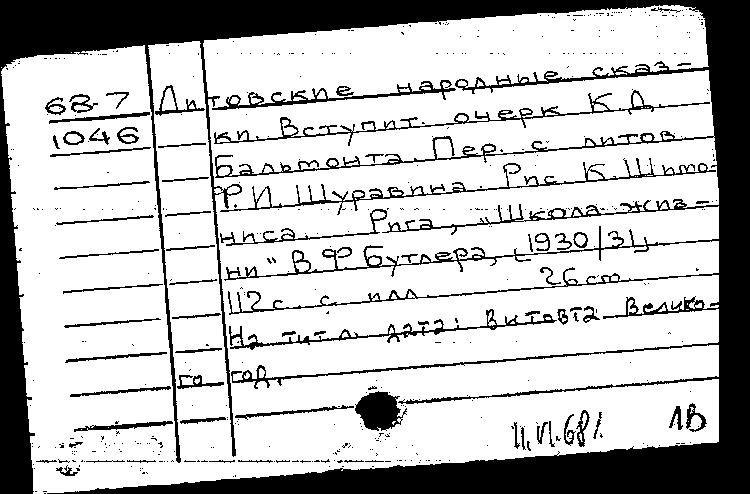 68-7 Литовские народные сказ-
1046 ки. Вступит. очерк К.Д.
Бальмонта. Пер. с литов.
Ф.И. Шуравина. Рис. К. Шимо-
ниса. Рига, „Школа жиз-
ни" В.Ф Бутлера, [1930/31].
112 с. с илл. 26 см.
На тит. л. дата: Витовта Велико-
го год.
11.VI.68г. 1В